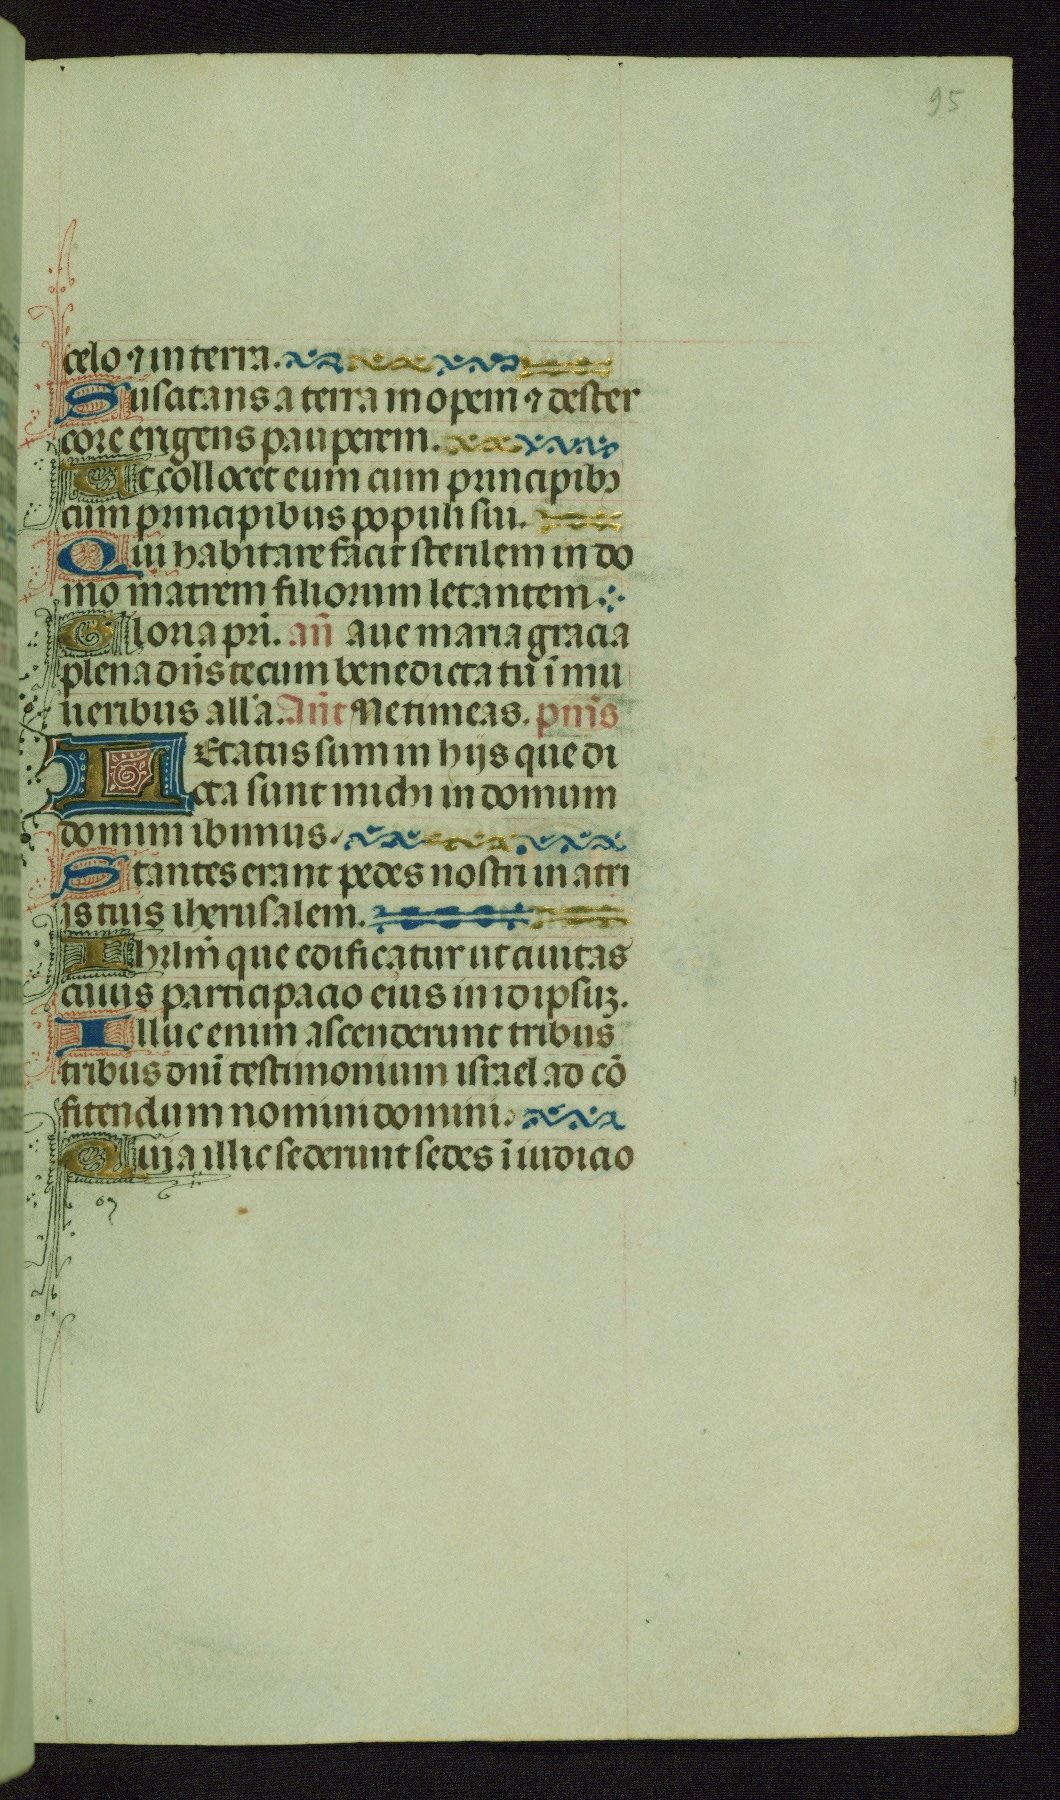 95
celo ⁊ in terra.
Suscitans a terra inopem ⁊ de ster
core erigens pauperem.
Ut collocet eum cum principibꝫ
cum principibus populi sui.
Qui habitare facit sterilem in do
mo matrem filiorum letantem
Gloria pr̄i. an̄ aue maria gracia
plena dn̄s tecum benedicta tu ī mu
lieribus all'a. Ant̄ Ne timeas. pm̄s
Letatus sum in hijs que di
cta sunt michi in domum
domini ibimus.
Stantes erant pedes nostri in atri
is tuis iherusalem.
Ihrlm̄ que edificatur ut ciuitas
cuius participacio eius in idipsuꝫ.
Illuc enim ascenderunt tribus
tribus dn̄i testimonium israel ad cō
fitendum nomini domini.
Quia illic sederunt sedes ī iudicio